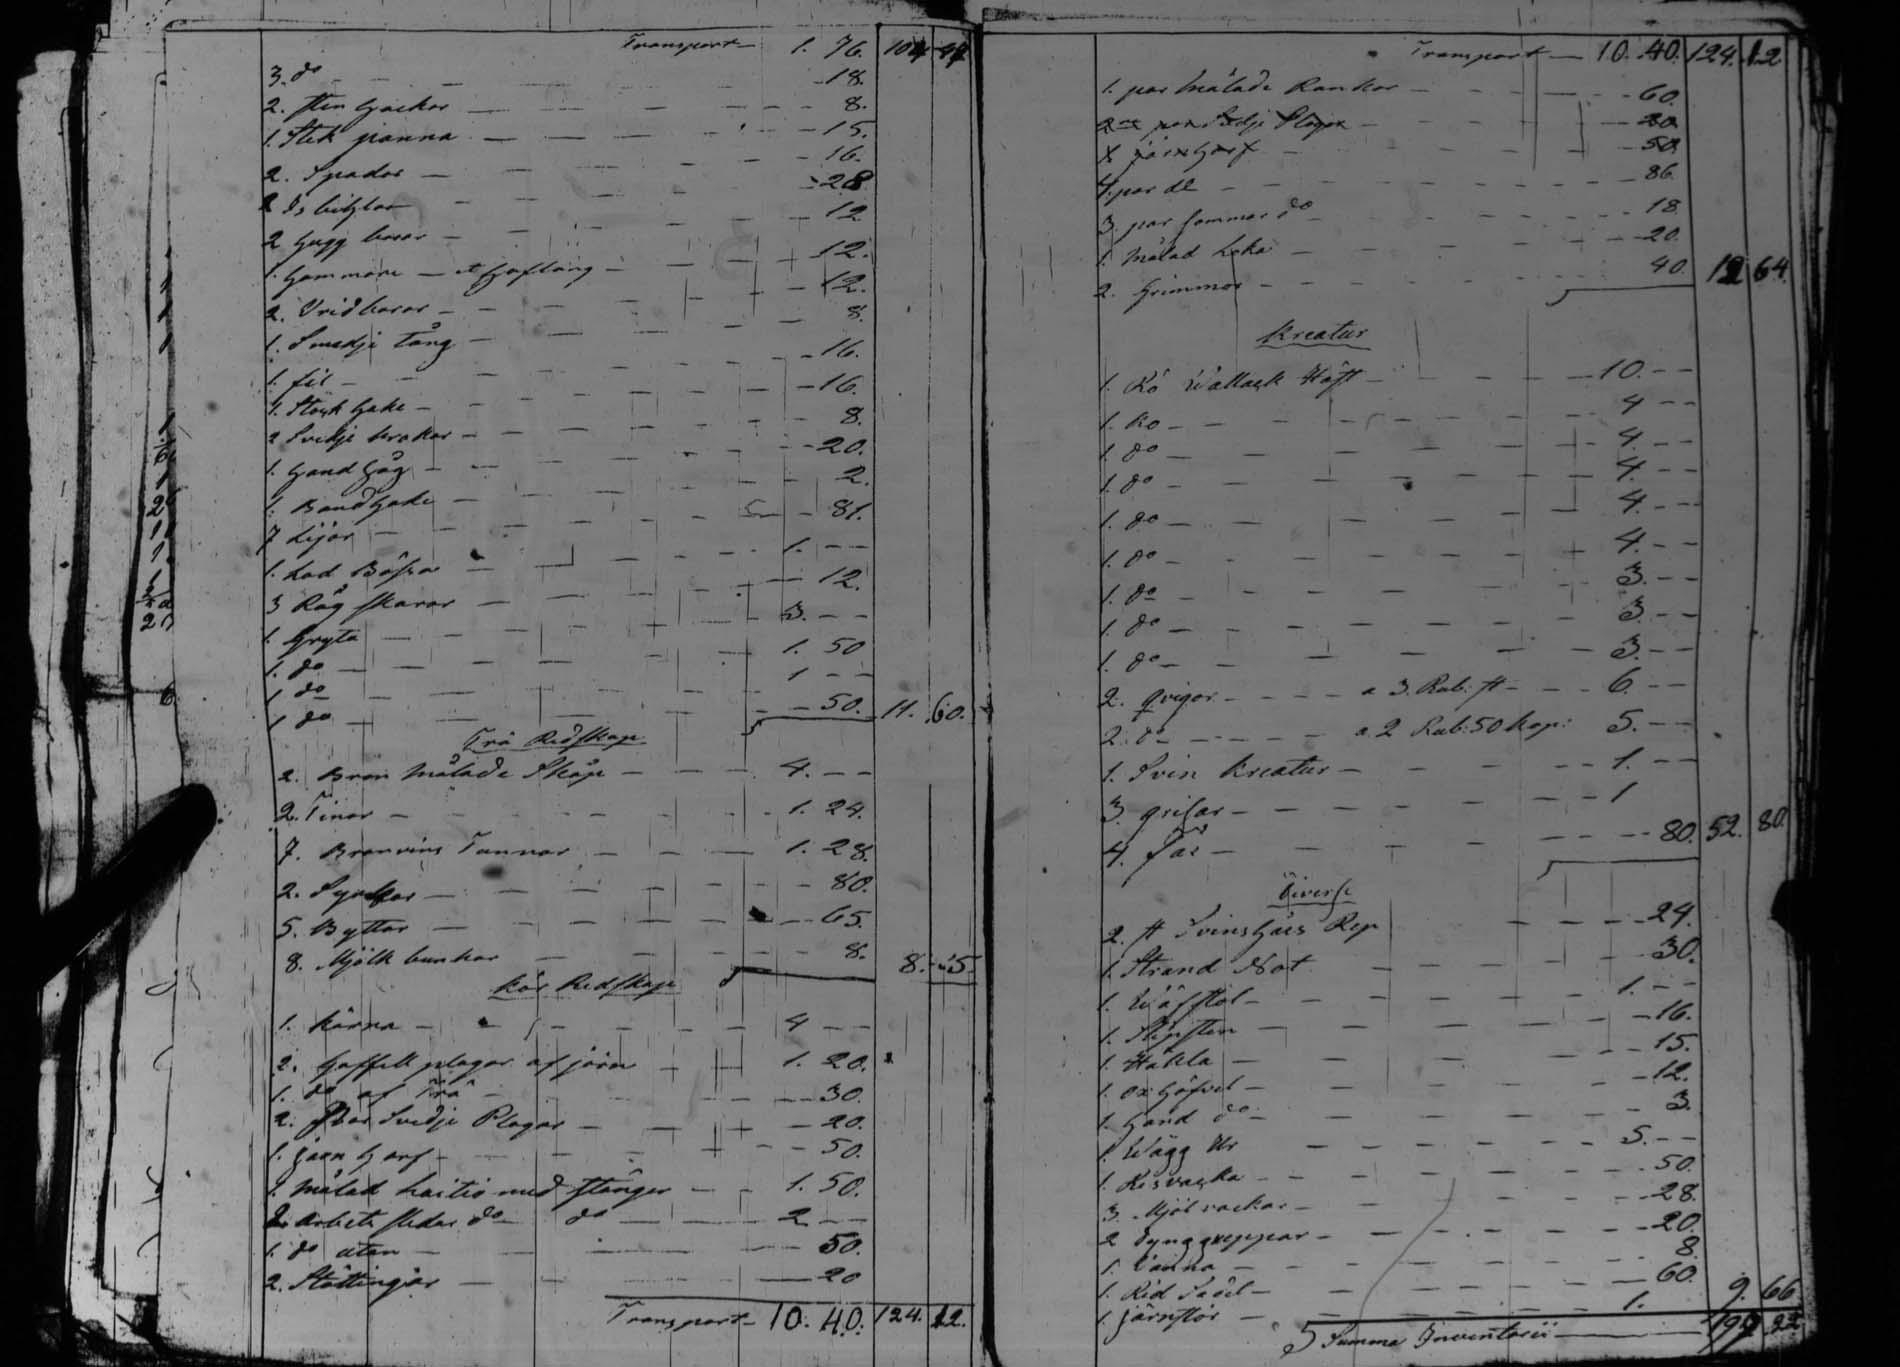 Transport — 1. 76. 104 47
3. do — 18.
2. Sten Hackor — 8.
1. Stek panna — 15.
2. Spador — 16.
2 Is bihlar — 28
2 Hugg borar — 12
1. Hammare — o Hoftång — 12.
2. Vridborar — 12.
1. Smedje Tång — 8.
1. fil — 16.
1. Stock Hake — 16.
2 Svedje krokar — 8.
1. Hand Såg — 20.
1. Band Hake — 2.
7 Lijar — 81.
1. Lod Bössa — 1. — —
3 Råg skäror — 12.
1. Gryta — 3. — —
1. do — 1. 50
1 do — 1 — —
1 do — 50. 11. 60.
Trä Redskap
2. Brun målade Skåp — 4. — —
2. Tinor — 1. 24.
7. Branvins Tunnor — 1. 28.
2. — 80.
5. Byttor — 65.
8. Mjölk bunkar — 8. 8. 5.
Kör Redskap
1. Kärra — 4 — —
2. Gaffell plogar af järn — 1. 20.
1. do af Trä — 30.
2. Par Svedje Plogar — 20.
1. järn Harf — 50.
1. målad Laitio med Stänger — 1. 50.
2. arbets slädar do do — 2. — —
1. do utan — 50.
2. Stöttingar — 20
Transport — 10. 40. 124. 12.
Transport — 10. 40. 124. 12
1. par målade Rankor — 60.
par Svedje Plogar — 20
1. järn Harf — 50.
4. par do — 86.
3. par sommar do — 18.
1. Målad Loka — 20.
2. Grimmor — 40. 12 64.
Kreatur
1. Rö Wallack Häst — 10. — —
1. Ko — 4 — —
1. do — 4. — —
1. do — 4. — —
1. do — 4. — —
1. do — 4. — —
1. do — 3. — —
1. do — 3. — —
1. do — 3. — —
2. qvigor — a 3. Rub: st — 6. — —
2. do — a 2 Rub: 50 kop: 5. — —
1. Svin Kreatur — 1. — —
3. grisar — 1
4. Får — 80. 52. 80.
Diverse
2. st Svinshårs Rep — 24.
1. Strand Not — 30.
1. Wäfstol — 1. — —
1. Slipsten — 16.
1. Häkla — 15.
1. Ox Höfvel — 12.
1. Hand do — 3.
1. Wägg Ur — 5. — —
1. — 50.
3. Mjöl säckar — 28.
2 — 20.
1. Kanna — 8.
1. Rid Sadel — 60.
1. järnstör — 1. 9. 66
Summa Inventarii — 199. 22.